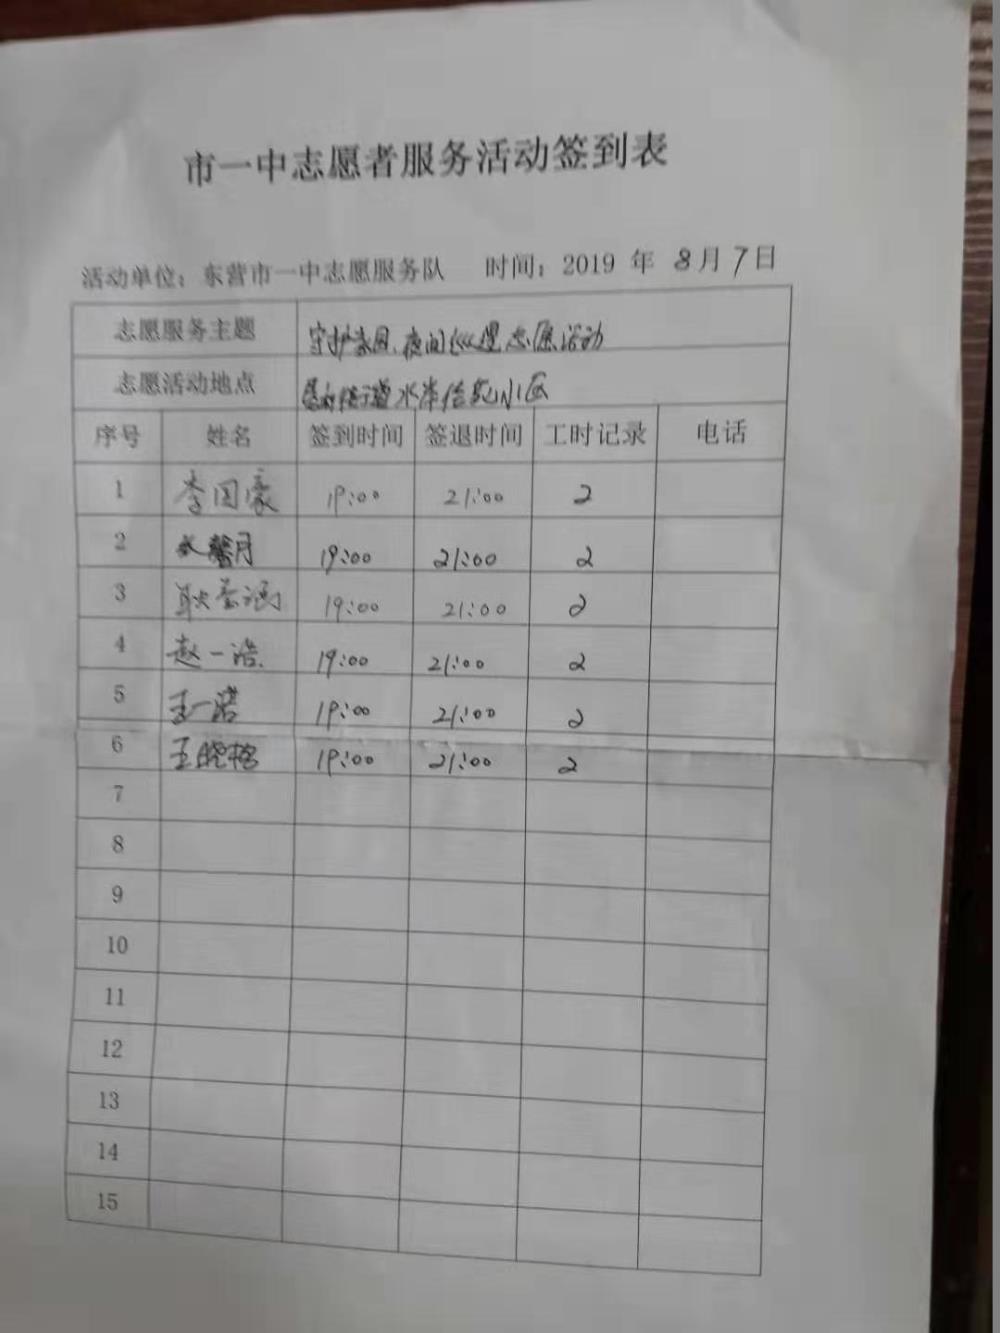 市一中志愿者服务活动签到表
活动单位：东营市一中志愿服务队 时间：2019 年 8月7日
志愿服务主题 守护家园、夜间巡逻志愿活动
志愿活动地点 街道水岸佳苑小区
序号 姓名 签到时间 签退时间 工时记录 电话
1 李国豪 19:00 21:00 2
2 19:00 21:00 2
3 19:00 21:00 2
4 赵一浩 19:00 21:00 2
5 王一诺 19:00 21:00 2
6 王晓格 19:00 21:00 2
7
8
9
10
11
12
13
14
15